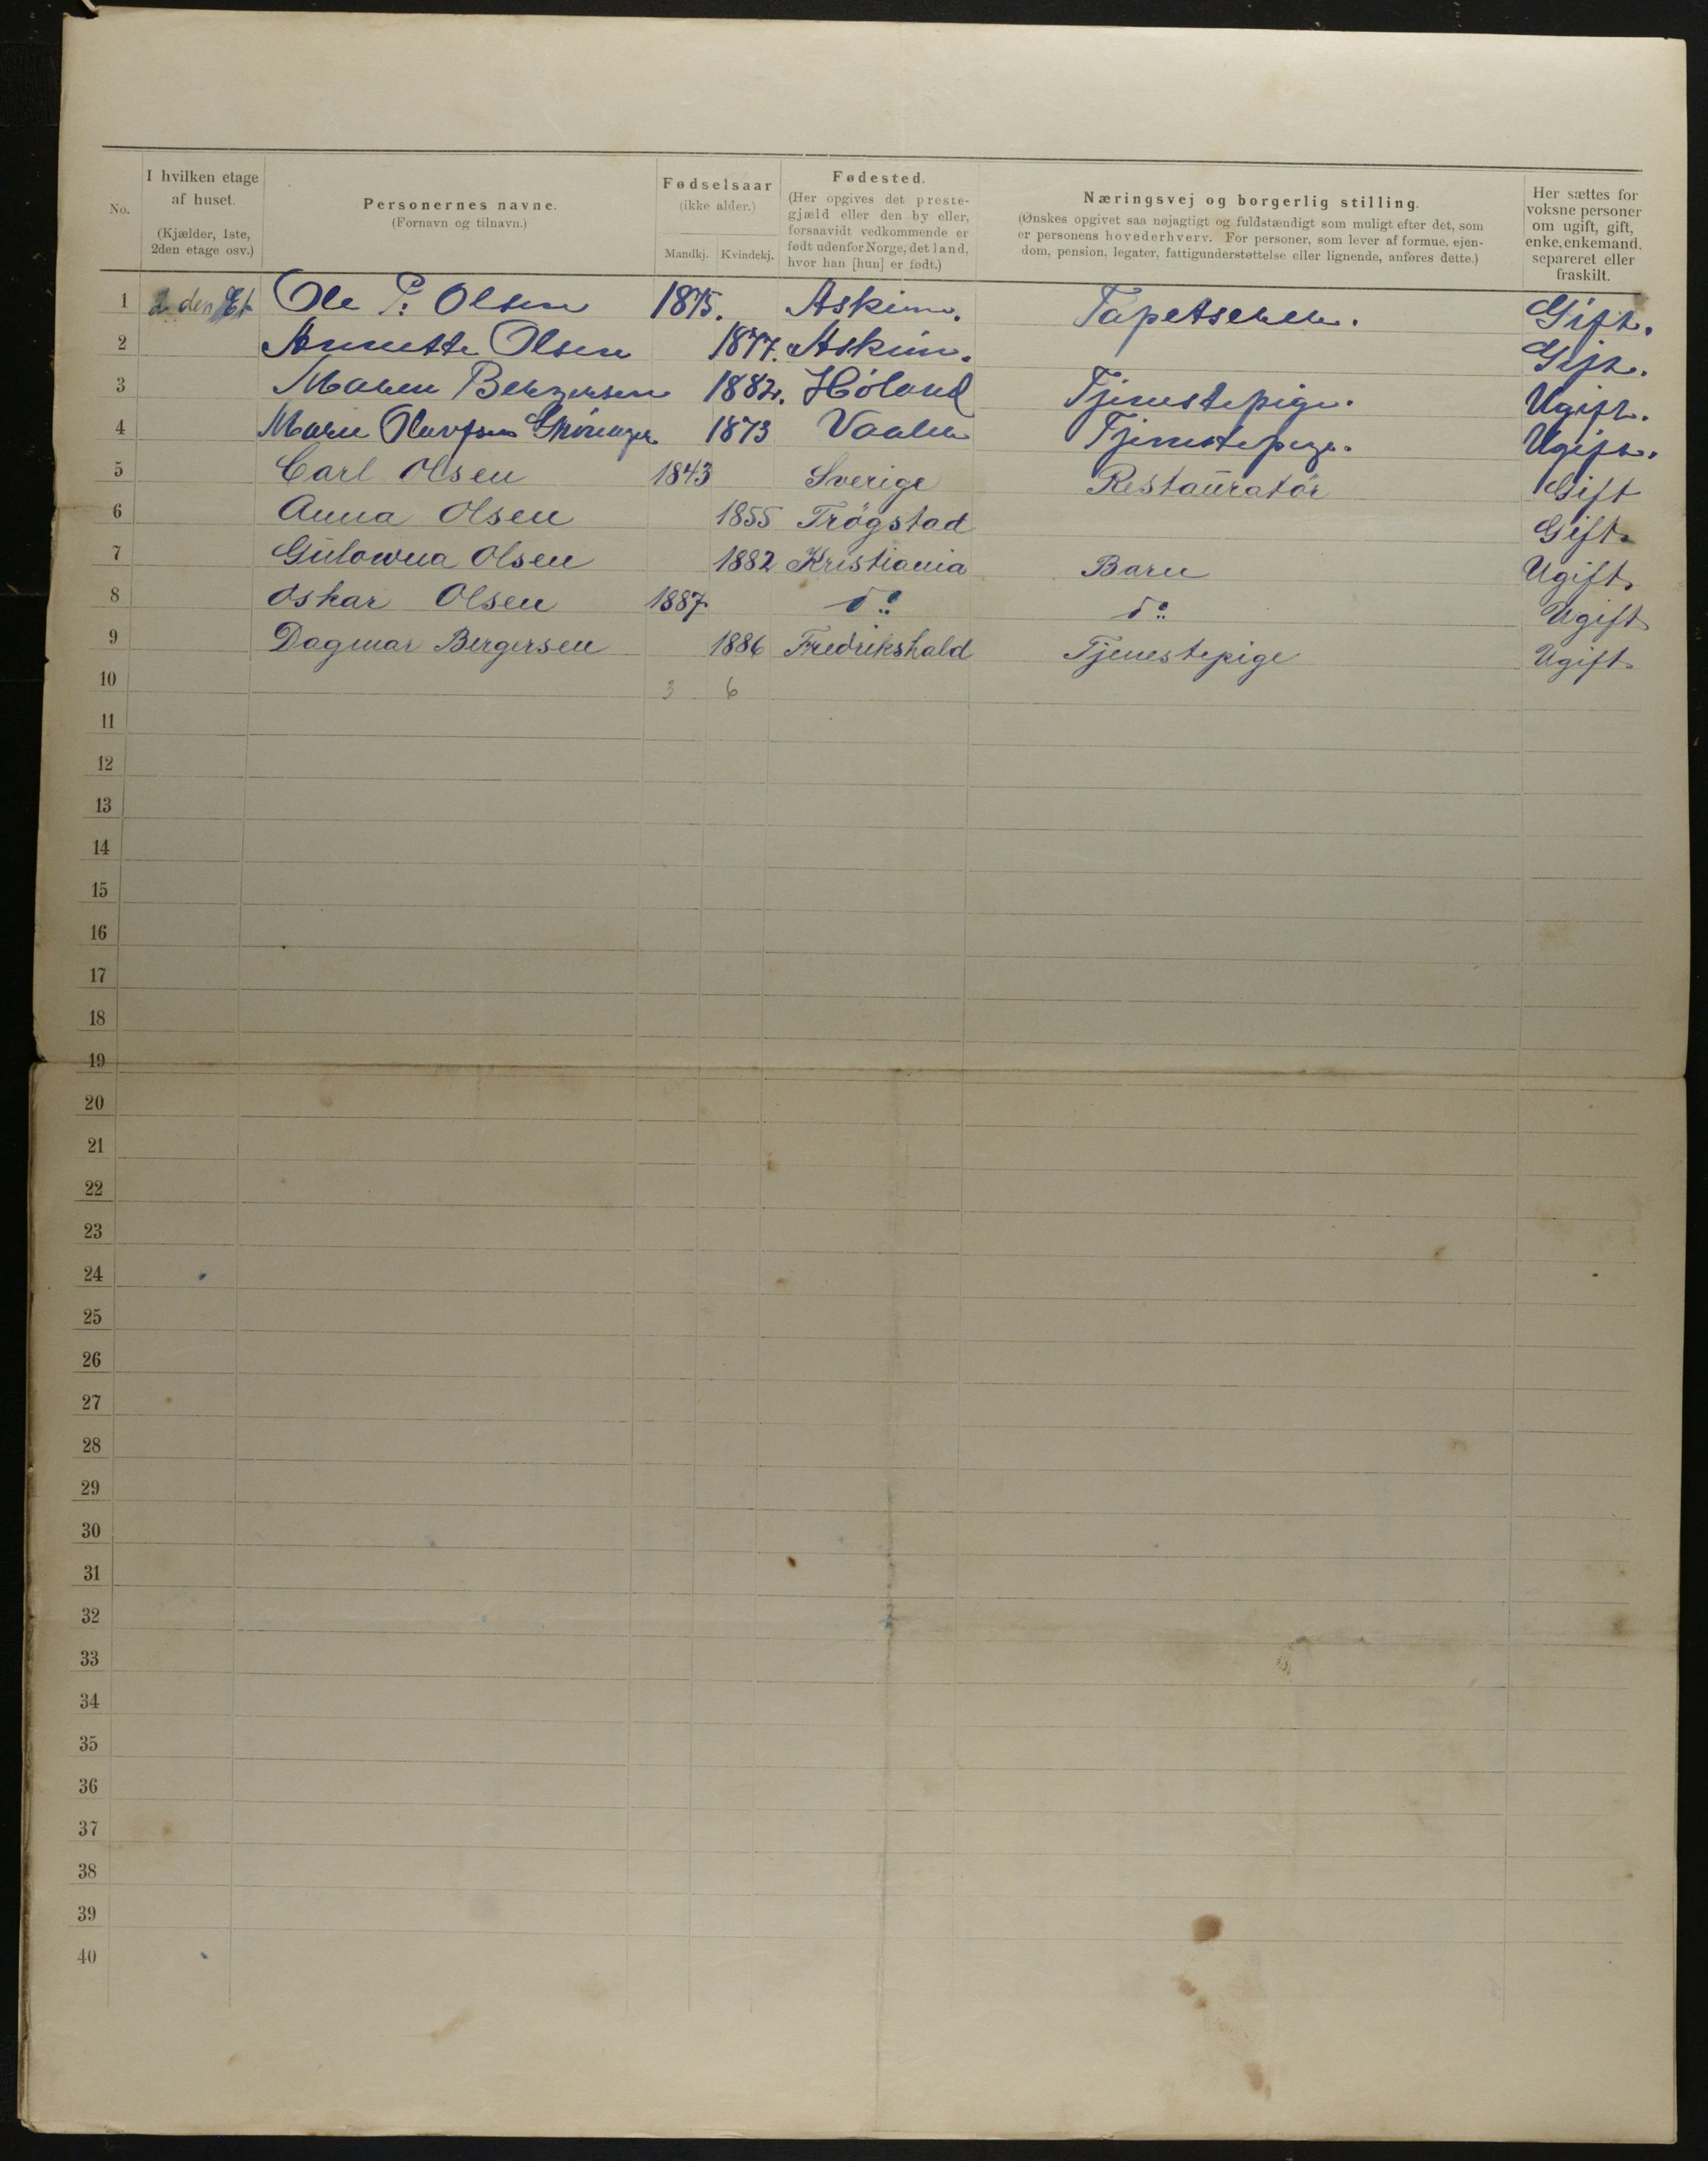 No.
I hvilken etage af huset.
(Kjælder, 1ste, 2den etage osv.)
Personernes navne.
(Fornavn og tilnavn.)
Fødselsaar
(ikke alder.)
Mandkj. Kvindekj.
Fødested.
(Her opgives det preste-
gjæld eller den by eller,
forsaavidt vedkommende er
født udenfor Norge, det land,
hvor han [hun] er født.)
Næringsvej og borgerlig stilling.
(Ønskes opgivet saa nøjagtigt og fuldstændigt som muligt efter det, som
er personens hovederhverv. For personer, som lever af formue, ejen-
dom, pension, legater, fattigunderstøttelse eller lignende, anføres dette.)
Her sættes for
voksne personer
om ugift, gift,
enke, enkemand,
separeret eller
fraskilt.
1 2den Et Ole P: Olsen 1875. Askim. Tapetserer. Gift.
2 Annette Olsen 1877. Askim. Gift.
3 Maren Bergersen 1882. Høland Tjenestepige. Ugift.
4 Maren Oluvsen 1873 Vaaler Tjenestepige. Ugift.
5 Carl Olsen 1843 Sverige Restauratør Gift
6 Anna Olsen 1855 Trøgstad Gift
7 Gulowna Olsen 1882 Kristiania Barn Ugift
8 Oskar Olsen 1887 do do Ugift
9 Dagmar Bergersen 1886 Fredrikshald Tjenestepige Ugift
10 3 6
11
12
13
14
15
16
17
18
19
20
21
22
23
24
25
26
27
28
29
30
31
32
33
34
35
36
37
38
39
40